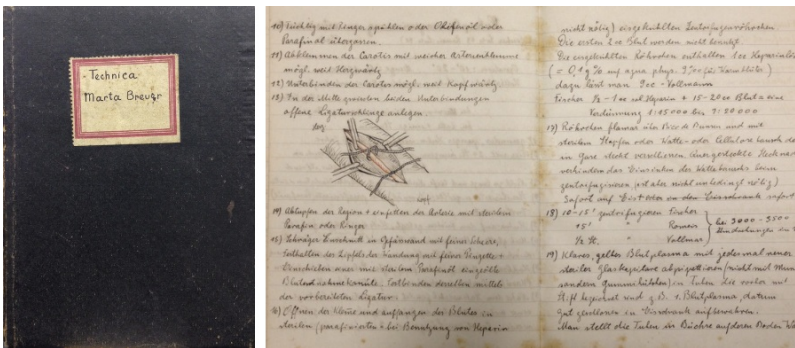 Technica
Marta Breuer
10) Tüchtig mit Ringer spühlen oder Olofenöl oder
Parafinöl übergossen.
11) Abklemmen der Carotis mit weicher Arterienklemme
mögl. weit Herzwärtz
12) Unterbinden der Carotis mögl. weit Kopfwärtz
13) In der Mitte zwischen beiden Unterbindungen
offene Ligaturschlinge anlegen.
14) Abtupfen der Region + einfetten der Arterie mit sterilem
Parafin oder Ringer
15) Schräger Einschnitt in Gefässwand mit feiner Schere,
festhalten des Zipfels der Wandung mit feiner Pinzette
Einschieben einer mit sterilem Parafinöl eingeölte
Blutentnahmekanüle, festbinden derselben mittels
der vorbereiteten Ligatur.
16) Öffnen der Klemme und auffangen des Blutes in
sterilen (parafinierten + bei Benutzung von Heparin
nicht nötig) eisgekühlten Zentrifugenröhrchen.
Die ersten 2 cc Blut werden nicht benützt.
Die eisgekühlten Röhrchen enthalten 1 cc Heparinlös
(= 0,1 g % auf aqua phys. 9 ‰ für Warmblüter)
dazu lässt man 9 cc - Vollmann
Fischer ½ - 1 cc sol Heparin + 15 - 20 cc Blut a eine
Verdünnung 1:15000 bis 1:20000
17) Röhrchen flamar über Bico de Bunsen und mit
sterilen Stopfen oder Watte- oder Cellulose bausch der
in Gaze steckt verschliessen
verhindern das Einsinken des Wattebauschs beim
zentrifugieren, ist aber nicht unbedingt nötig)
Sofort auf Eis + oder in den Eisschrank sofort
18) 10-15' zentrifugieren Dreher
15' " Romero
½ St. " Vollmar
bei 3000 - 3500
Umdrehungen
19) Klares, gelbes Blutplasma mit jedesmal neuer
steriler Glaskapillare abpipettieren (nicht mit Mund
sondern Gummihütchen) in Tuben die vorher mit
Stift bezeichnet sind z.B. 1. Blutplasma, datum
gut geschlossen in Eisschrank aufbewahren.
Man stellt die Tuben in Büchse auf deren Boden Wa